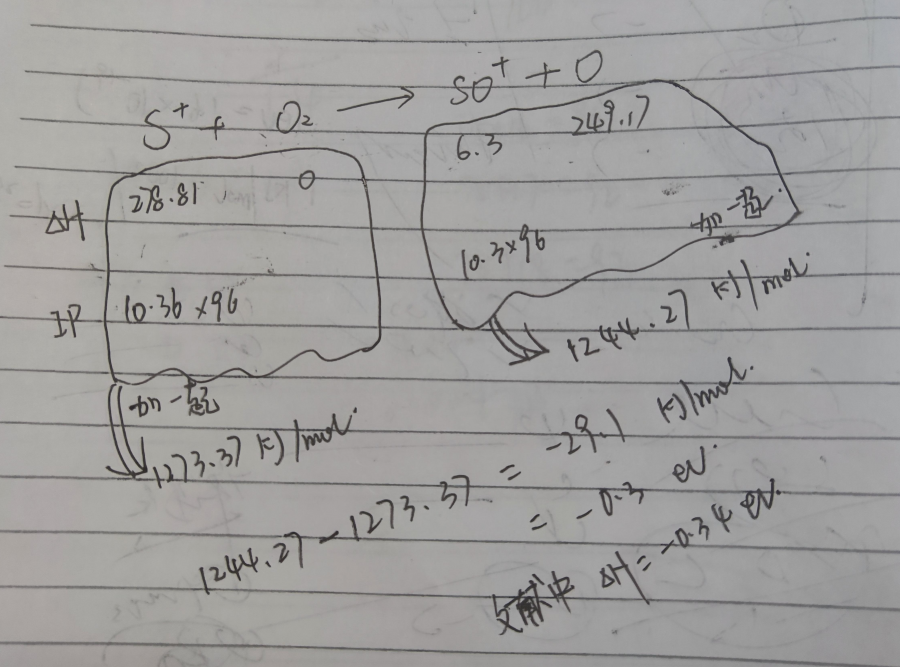 S⁺ + O₂ ⟶ SO⁺ + O
ΔH 278.81 0 6.3 249.17
IP 10.36 ×96 10.3×96 加一起
加一起
1273.37 KJ/mol. 1244.27 KJ/mol.
1244.27 - 1273.37 = -29.1 KJ/mol.
= -0.3 eV.
文献中 ΔH = -0.34 eV.